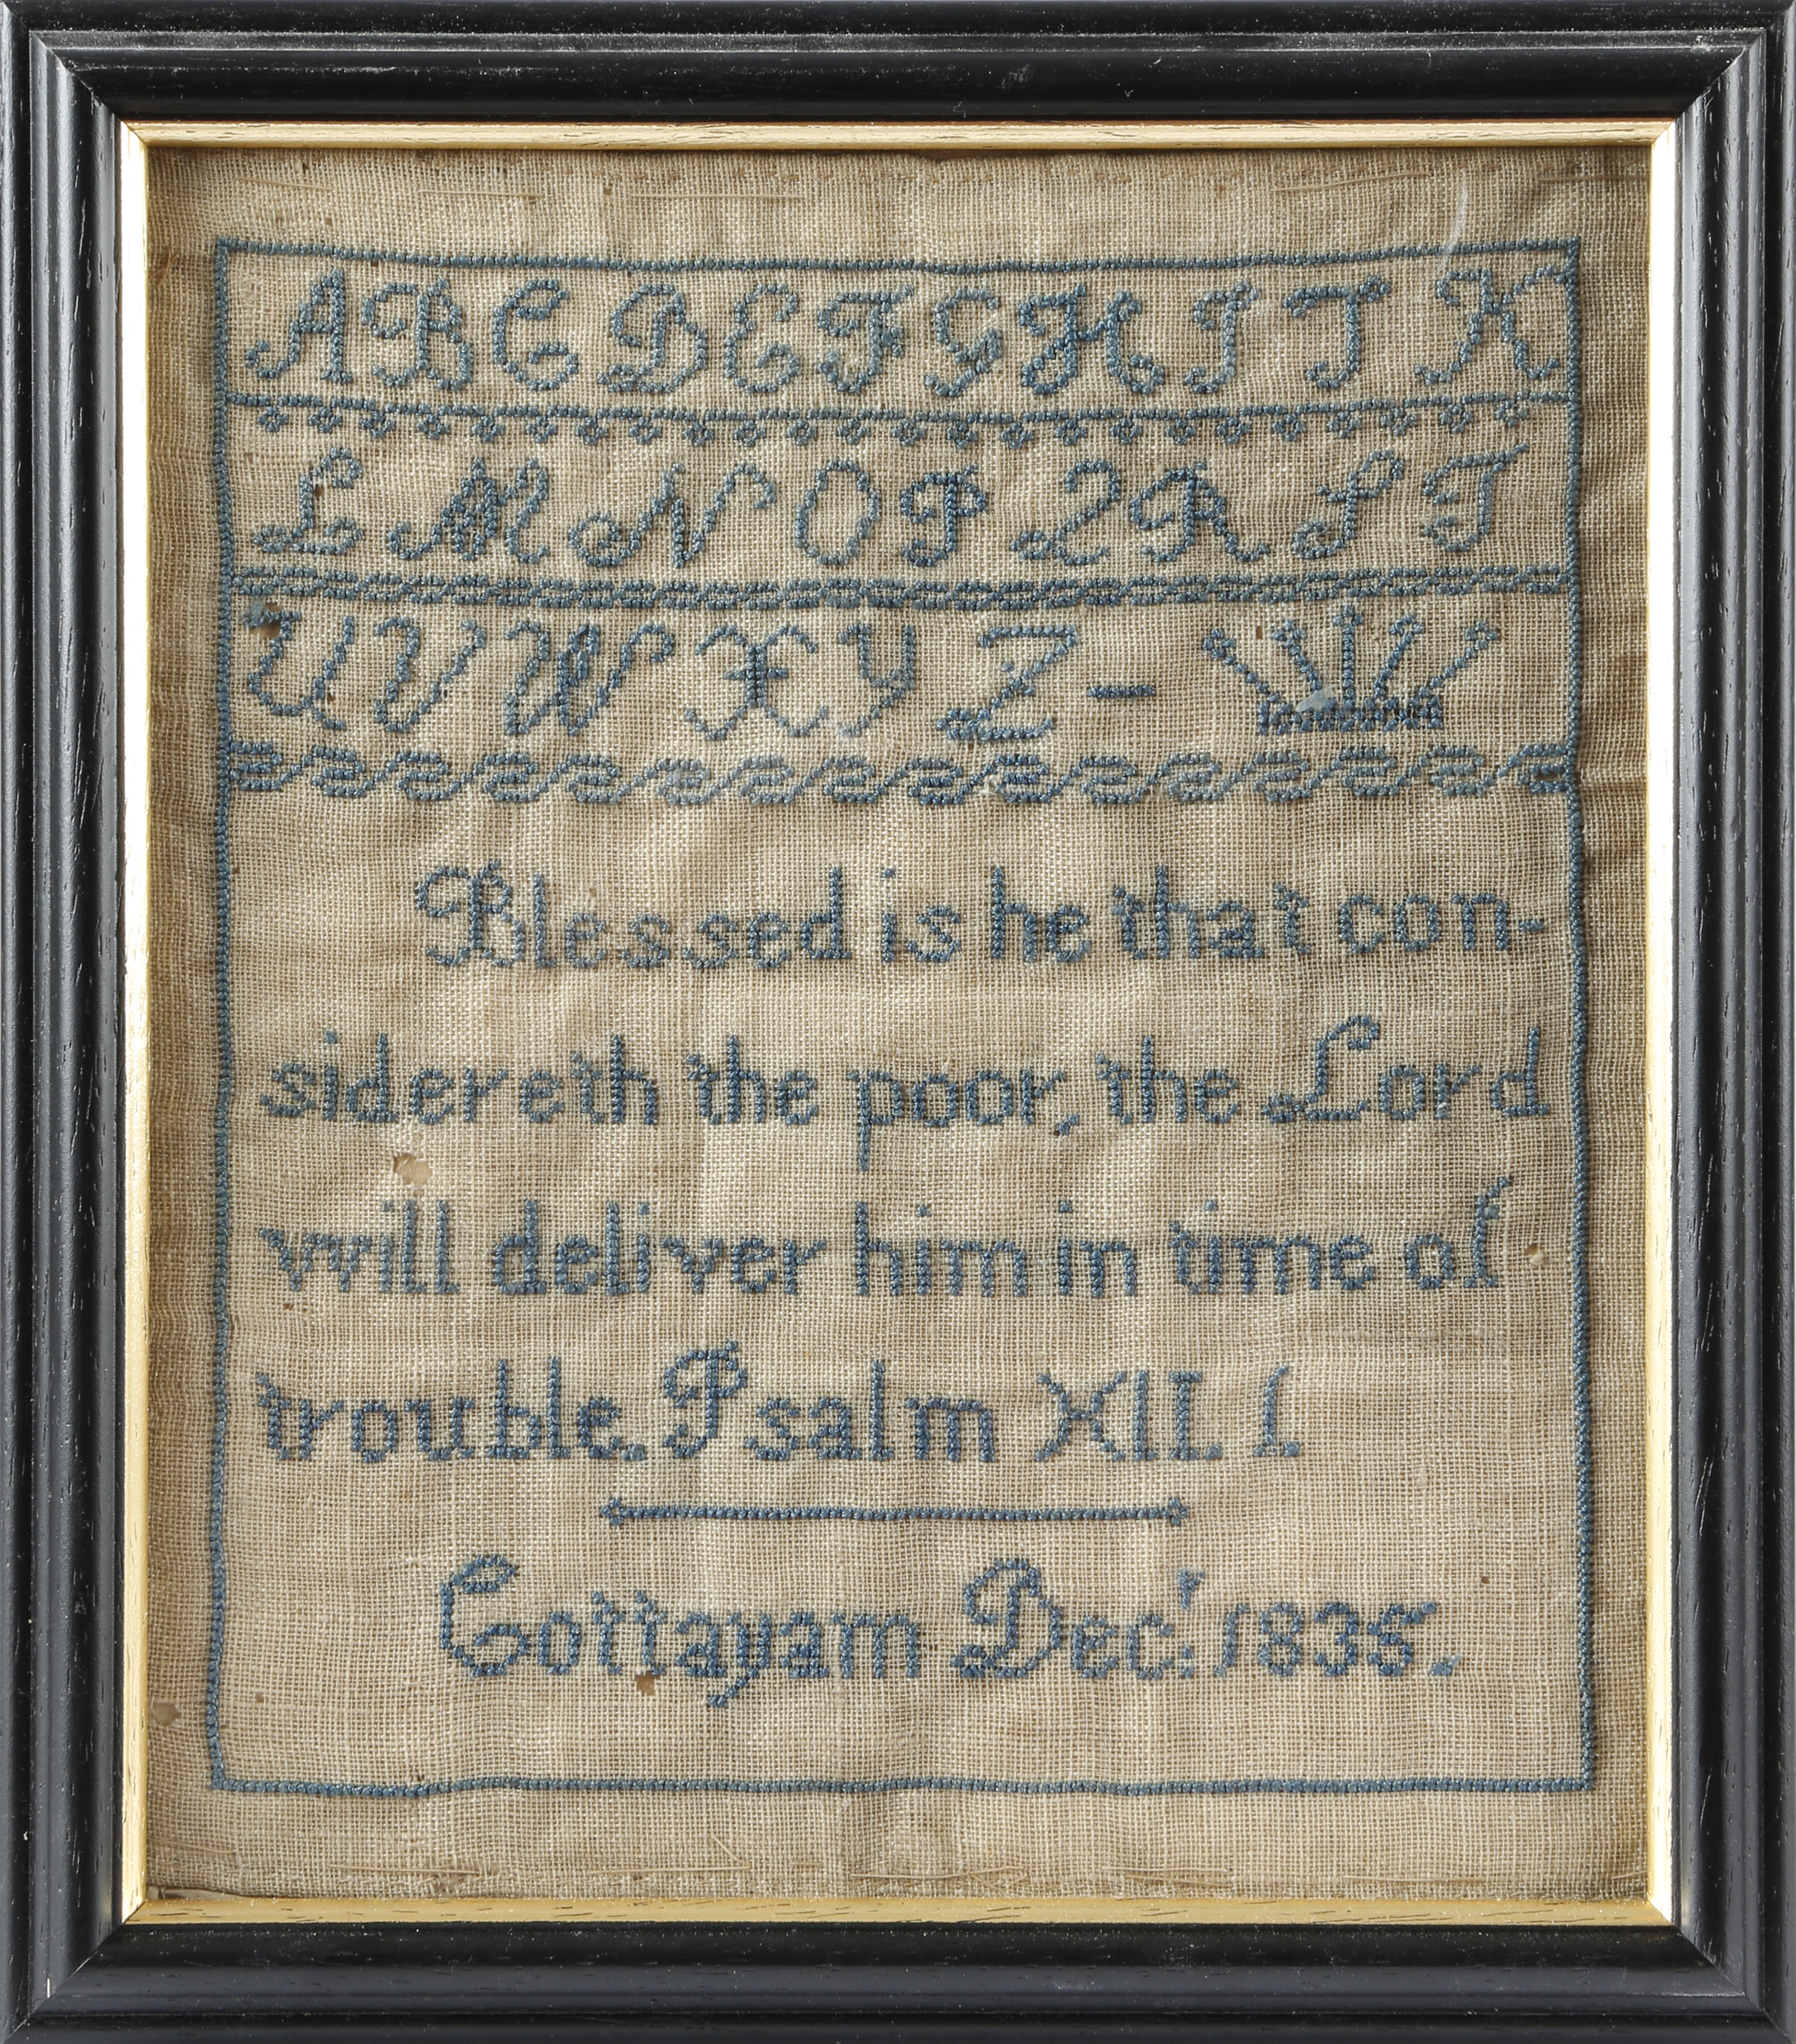 A B C D E F G H I J K
L M N O P Q R S T
U V W X Y Z –
Blessed is he that con-
sidereth the poor, the Lord
will deliver him in time of
trouble. Psalm XLI. 1.
Cottayam Decr. 1835.